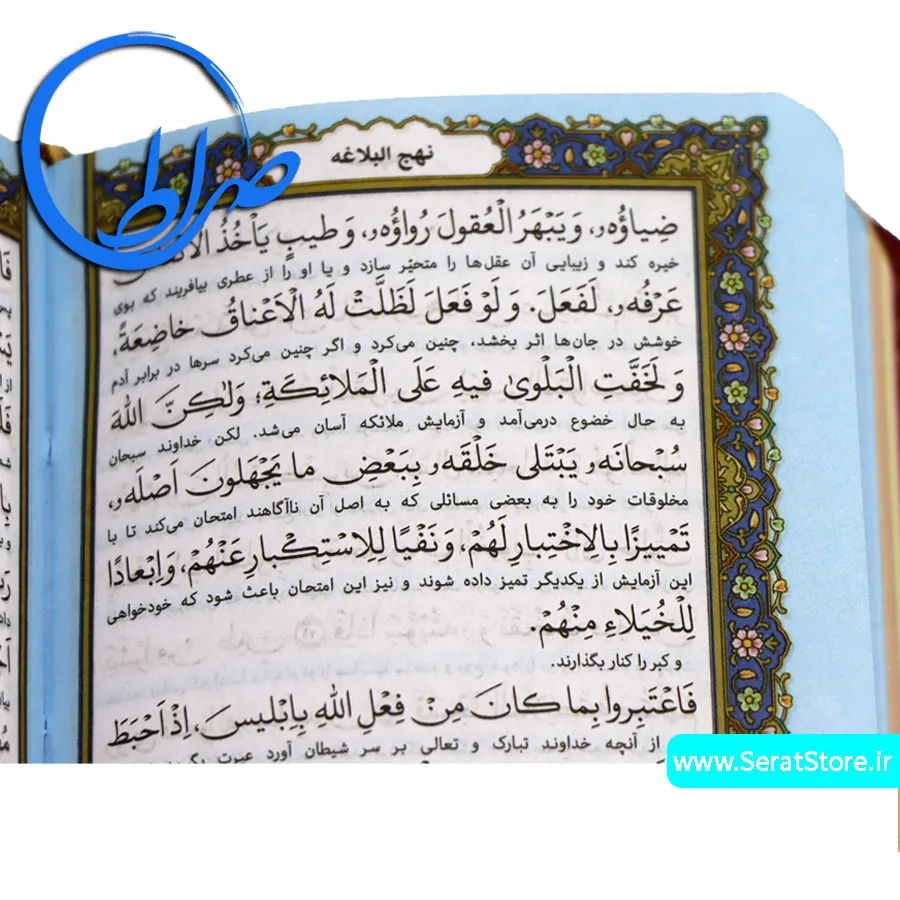 صراط
نهج البلاغه
ضِياؤُهُ، وَ يَبْهَرُ الْعُقولَ رُواؤُهُ، وَ طيبٍ يَأْخُذُ
خیره کند و زیبایی آن عقل‌ها را متحیّر سازد و یا او را از عطری بیافریند که بوی
عَرْفُهُ، لَفَعَلَ. وَ لَوْ فَعَلَ لَظَلَّتْ لَهُ الْاَعْناقُ خاضِعَةً،
خوشش در جان‌ها اثر بخشد، چنین می‌کرد و اگر چنین می‌کرد سرها در برابر آدم
وَ لَخَفَّتِ الْبَلْوىٰ فيهِ عَلَى الْمَلائِكَةِ؛ وَلٰكِنَّ اللهَ
به حال خضوع درمی‌آمد و آزمایش ملائکه آسان می‌شد. لکن خداوند سبحان
سُبْحانَهُ يَبْتَلى خَلْقَهُ بِبَعْضِ ما يَجْهَلونَ اَصْلَهُ،
مخلوقات خود را به بعضی مسائلی که به اصل آن ناآگاهند امتحان می‌کند تا با
تَمْييزًا بِالْاِخْتِبارِ لَهُمْ، وَ نَفْيًا لِلْاِسْتِكْبارِ عَنْهُمْ، وَ اِبْعادًا
این آزمایش از یکدیگر تمیز داده شوند و نیز این امتحان باعث شود که خودخواهی
لِلْخُيَلاءِ مِنْهُمْ.
و کبر را کنار بگذارند.
فَاعْتَبِروا بِما كانَ مِنْ فِعْلِ اللهِ بِاِبْليسَ، اِذْ اَحْبَطَ
از آنچه خداوند تبارک و تعالی بر سر شیطان آورد عبرت
www.SeratStore.ir